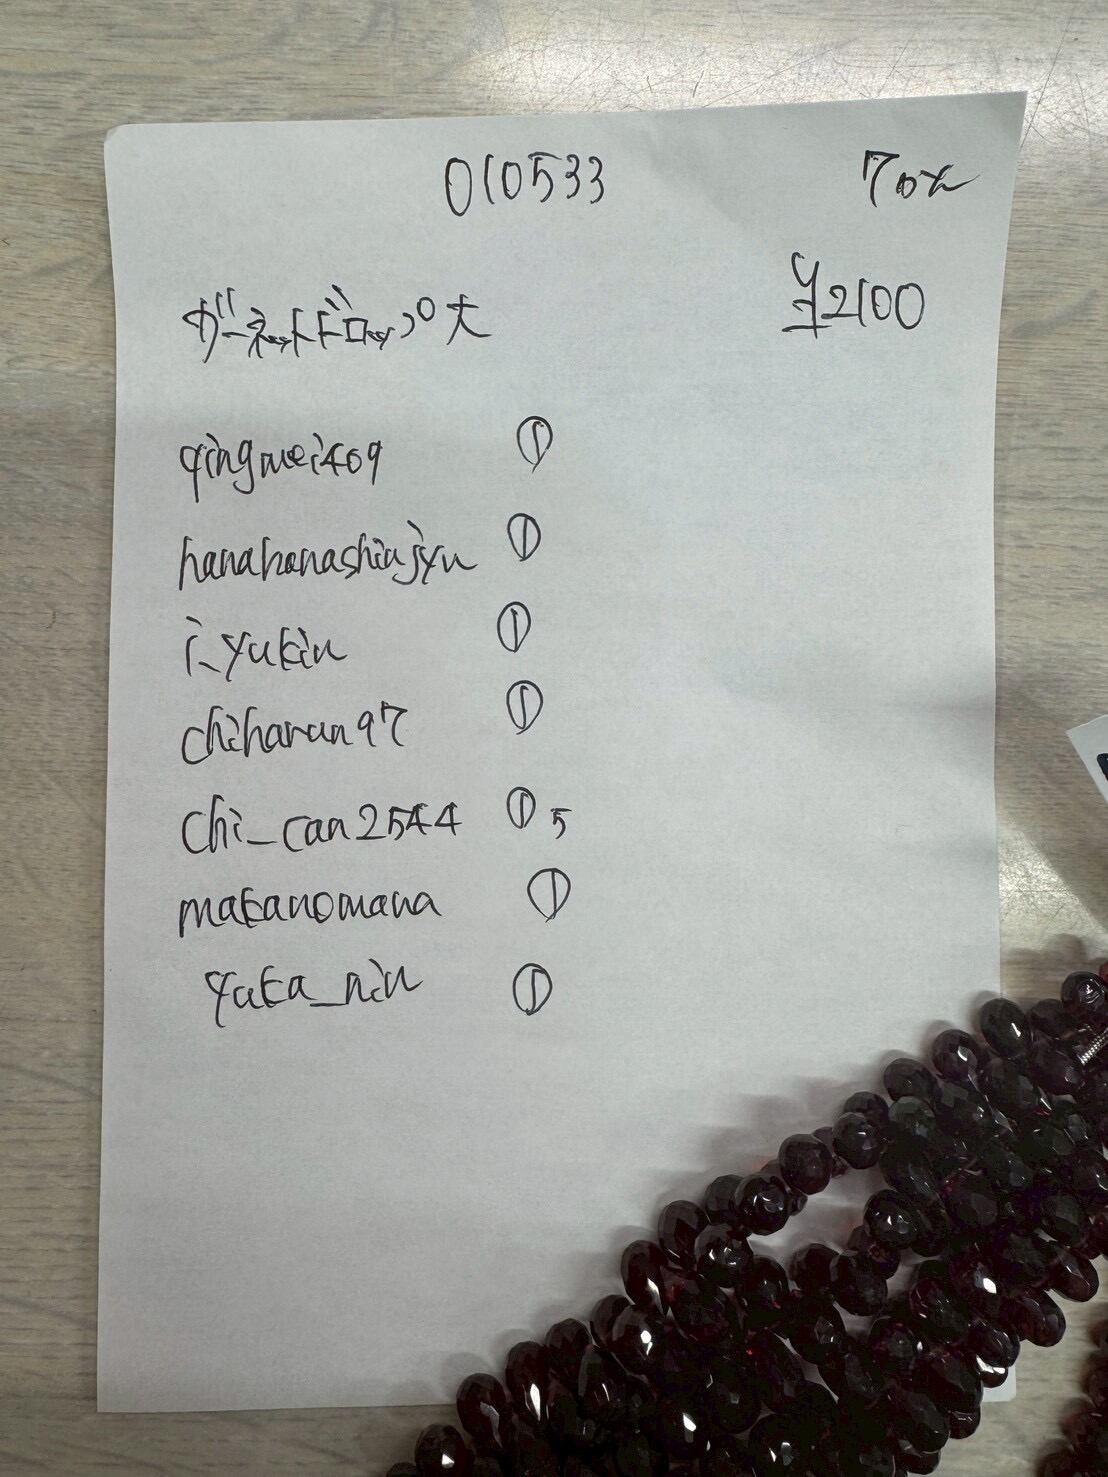 010533 70%
¥2100
ガーネットドロップ大
qingmei409 ①
hanahanashinjyu ①
i_yukin ①
chiharun97 ①
chi_can2544 ① 5
makanomana ①
yuka_nin ①